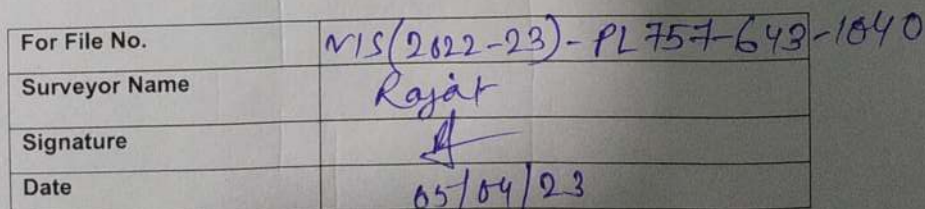 For File No. VIS(2022-23)-PL757-643-1040
Surveyor Name Rajat
Signature
Date 05/04/23